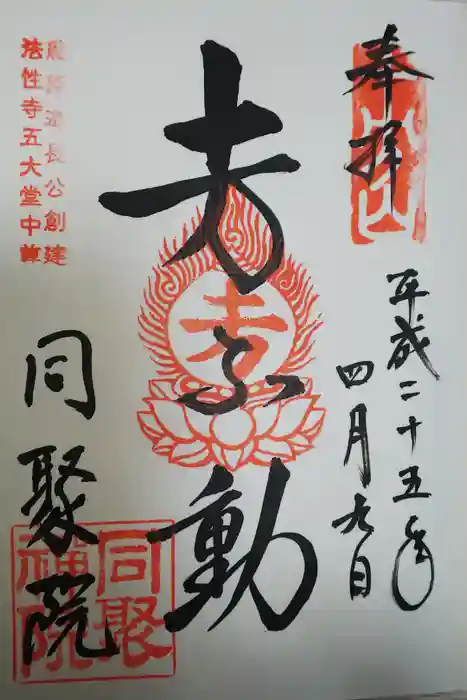 奉拝
平成二十五年
四月九日
十万不動
藤原道長公創建
法性寺五大堂中尊
同聚院
同聚
禅院